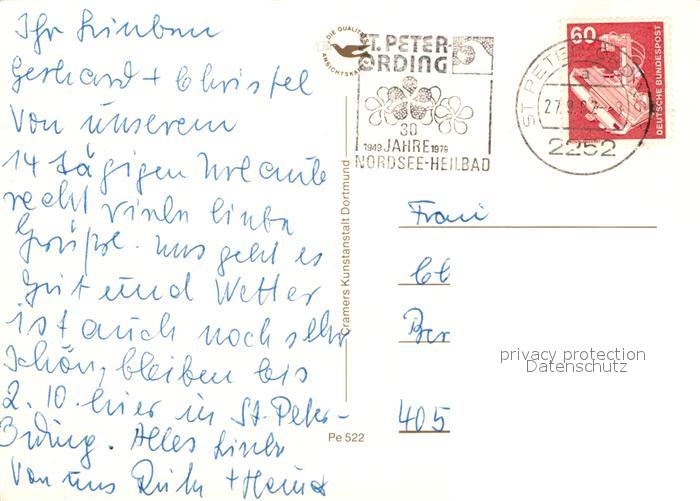 Ihr Lieben
Gerhard + Christel
Von unserem
14 tägigen Urlaub
recht viele liebe
Grüße. uns geht es
gut und Wetter
ist auch noch sehr
schön, bleiben bis
2.10. hier in St. Peter-
Ording. Alles Liebe
Von uns + Heinz
DIE QUALITÄTS
ANSICHTSKARTE
ST. PETER-
ORDING
30
1949 JAHRE 1979
NORDSEE-HEILBAD
ST PETER-ORDING
27.9.
2252
60
DEUTSCHE BUNDESPOST
Cramers Kunstanstalt Dortmund
Pe 522
Frau
405
privacy protection
Datenschutz